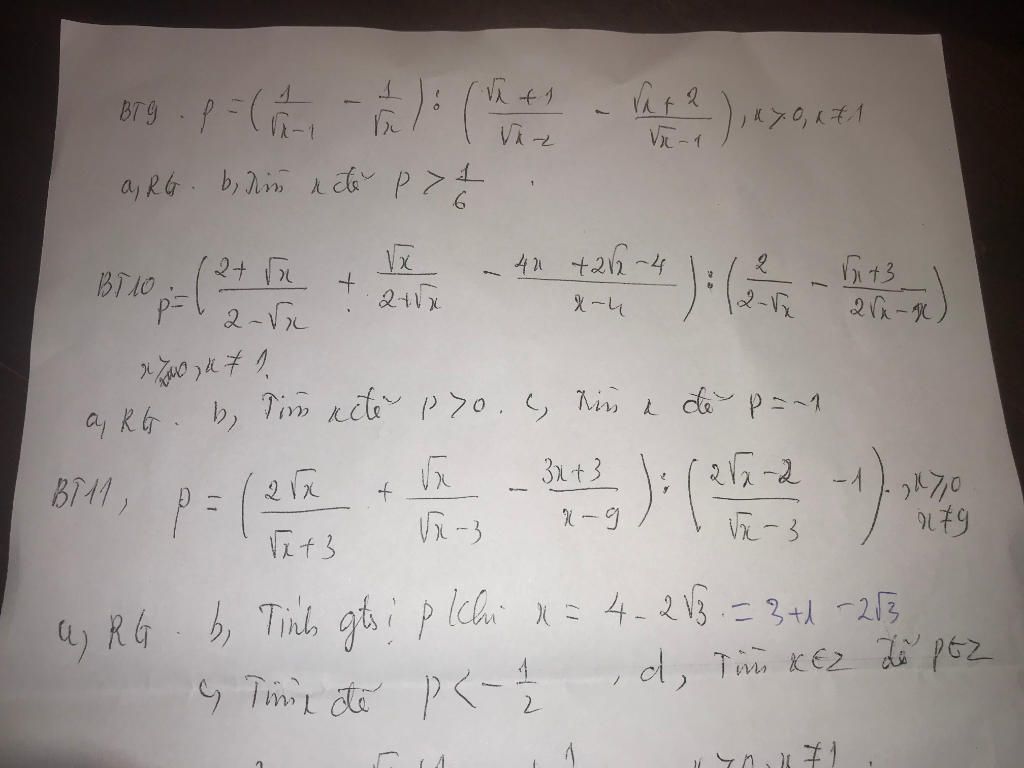 BT9. P = (1/(√x-1) - 1/√x) : ((√x+1)/(√x-2) - (√x+2)/(√x-1)), x>0, x≠1
a, RG. b, Tìm x để P > 1/6.
BT10 P = ((2+√x)/(2-√x) + √x/(2+√x) - (4x+2√x-4)/(x-4)) : (2/(2-√x) - (√x+3)/(2√x-x))
x>0, x≠1.
a, RG. b, Tìm x để P>0. c, Tìm x để P=-1
BT11, P = (2√x/(√x+3) + √x/(√x-3) - (3x+3)/(x-9)) : ((2√x-2)/(√x-3) - 1), x≥0 x≠9
a, RG. b, Tính gtrị P khi x = 4 - 2√3 = 3+1 - 2√3
c, Tìm x để P < -1/2, d, Tìm x∈Z để P∈Z